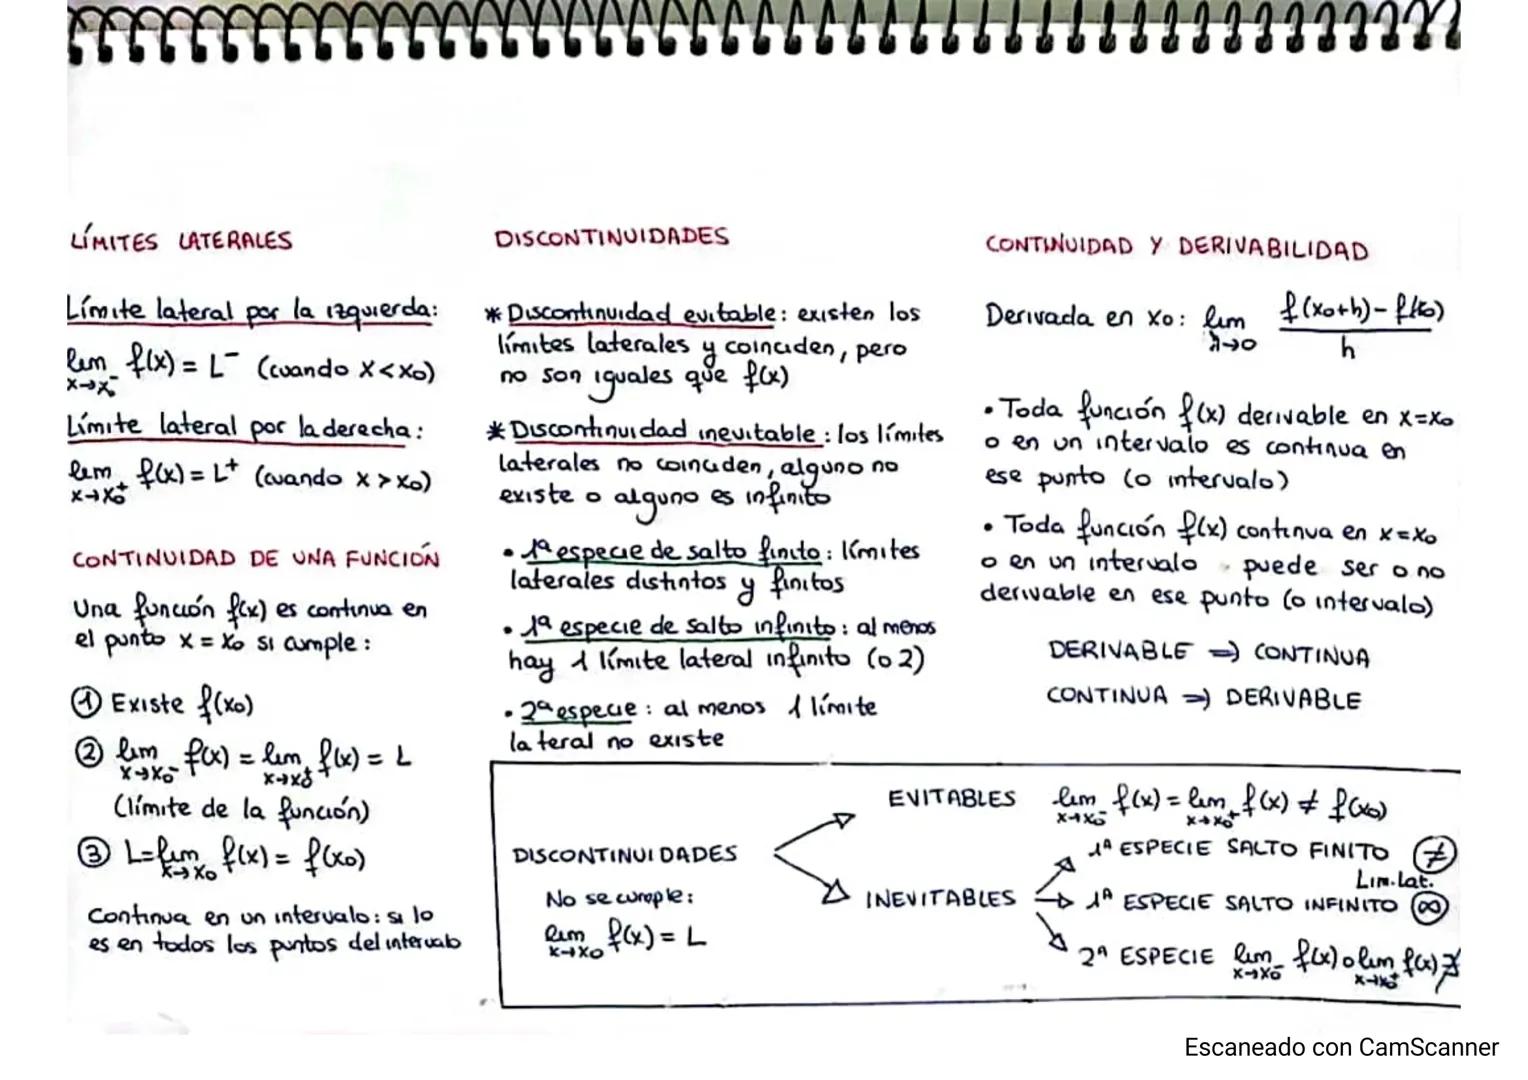 LÍMITES LATERALES
Límite lateral por la izquierda:
lim f(x) = L⁻ (cuando x<x₀)
x→x₀⁻
Límite lateral por la derecha:
lim f(x) = L⁺ (cuando x>x₀)
x→x₀⁺
CONTINUIDAD DE UNA FUNCIÓN
Una función f(x) es continua en
el punto x = x₀ si cumple:
① Existe f(x₀)
② lim f(x) = lim f(x) = L
x→x₀⁻ x→x₀⁺
(límite de la función)
③ L=lim f(x) = f(x₀)
x→x₀
Continua en un intervalo: si lo
es en todos los puntos del intervalo
DISCONTINUIDADES
* Discontinuidad evitable: existen los
límites laterales y coinciden, pero
no son iguales que f(x)
* Discontinuidad inevitable: los límites
laterales no coinciden, alguno no
existe o alguno es infinito
• 1ª especie de salto finito: límites
laterales distintos y finitos
• 1ª especie de salto infinito: al menos
hay 1 límite lateral infinito (o 2)
• 2ª especie: al menos 1 límite
lateral no existe
CONTINUIDAD Y DERIVABILIDAD
Derivada en x₀: lim f(x₀+h)-f(x₀)
h→0 h
• Toda función f(x) derivable en x=x₀
o en un intervalo es continua en
ese punto (o intervalo)
• Toda función f(x) continua en x=x₀
o en un intervalo puede ser o no
derivable en ese punto (o intervalo)
DERIVABLE ⇒ CONTINUA
CONTINUA ⇒ DERIVABLE
DISCONTINUIDADES
No se cumple:
lim f(x) = L
x→x₀
EVITABLES lim f(x) = lim f(x) ≠ f(x₀)
x→x₀⁻ x→x₀⁺
INEVITABLES
1ª ESPECIE SALTO FINITO ≠
Lim.lat.
1ª ESPECIE SALTO INFINITO ∞
2ª ESPECIE lim f(x) o lim f(x) ∄
x→x₀⁻ x→x₀⁺
Escaneado con CamScanner